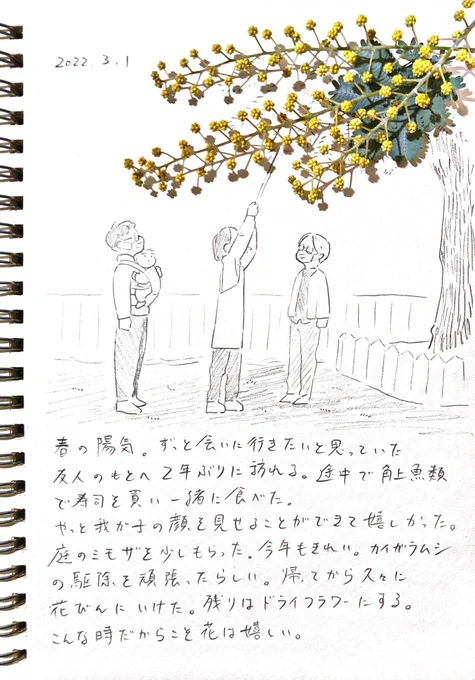 2022.3.1
春の陽気。ずっと会いに行きたいと思っていた
友人のもとへ2年ぶりに訪れる。途中で角上魚類
で寿司を買い一緒に食べた。
やっと我が子の顔を見せることができて嬉しかった。
庭のミモザを少しもらった。今年もきれい。カイガラムシ
の駆除を頑張ったらしい。帰ってから久々に
花びんにいけた。残りはドライフラワーにする。
こんな時だからこそ花は嬉しい。